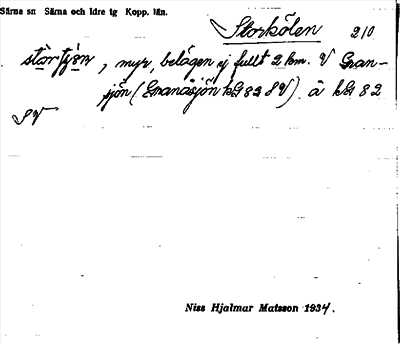 Särna sn Särna och Idre tg Kopp. län.
Storkölen 210
störtjøn, myr, belägen ej fullt 2 km. V Gran-
sjön (Granåsjön kG 82 SV) å kG 82
SV
Niss Hjalmar Matsson 1934.